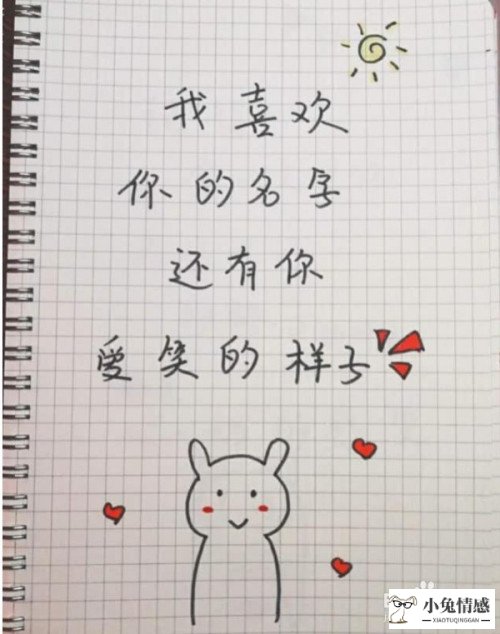 我喜欢
你的名字
还有你
爱笑的样子
小兔情感
XIAOTUQINGGAN